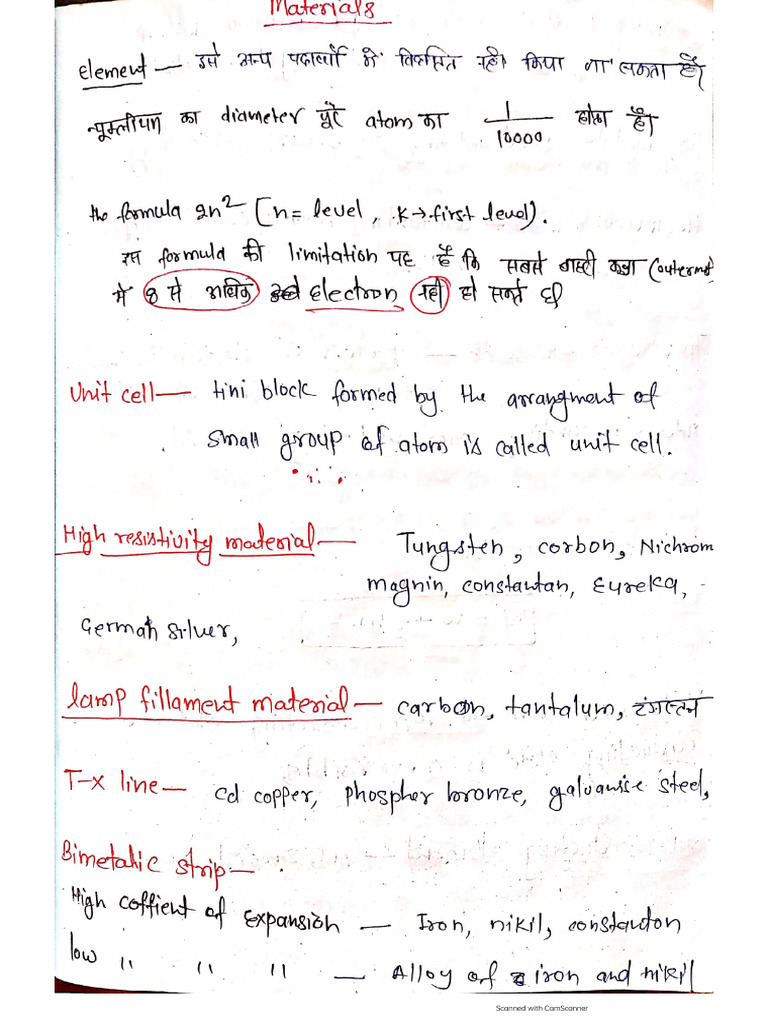 Materials
Element — उसे अन्य पदार्थो में विभाजित नही किया जा सकता है।
न्यूक्लीयन का diameter पूरे atom का 1/10000 होता है।
the formula 2n² [n = level, K→first level).
इस formula की limitation यह है कि सबसे बाहरी कक्षा (outermost
में 8 से अधिक electron नही हो सकते है।
Unit cell — tini block formed by the arrangment of
small group of atom is called unit cell.
High resistivity material — Tungsten, corbon, Nichrom
magnin, constantan, Eureka,
German Silver,
lamp fillament material — carbon, tantalum, टंगस्टन
T-x line — cd copper, phospher bronze, galvanise steel,
Bimetalic strip —
High coffient of Expansion — Iron, nikil, constanton
low " " " — Alloy of iron and nikil
Scanned with CamScanner